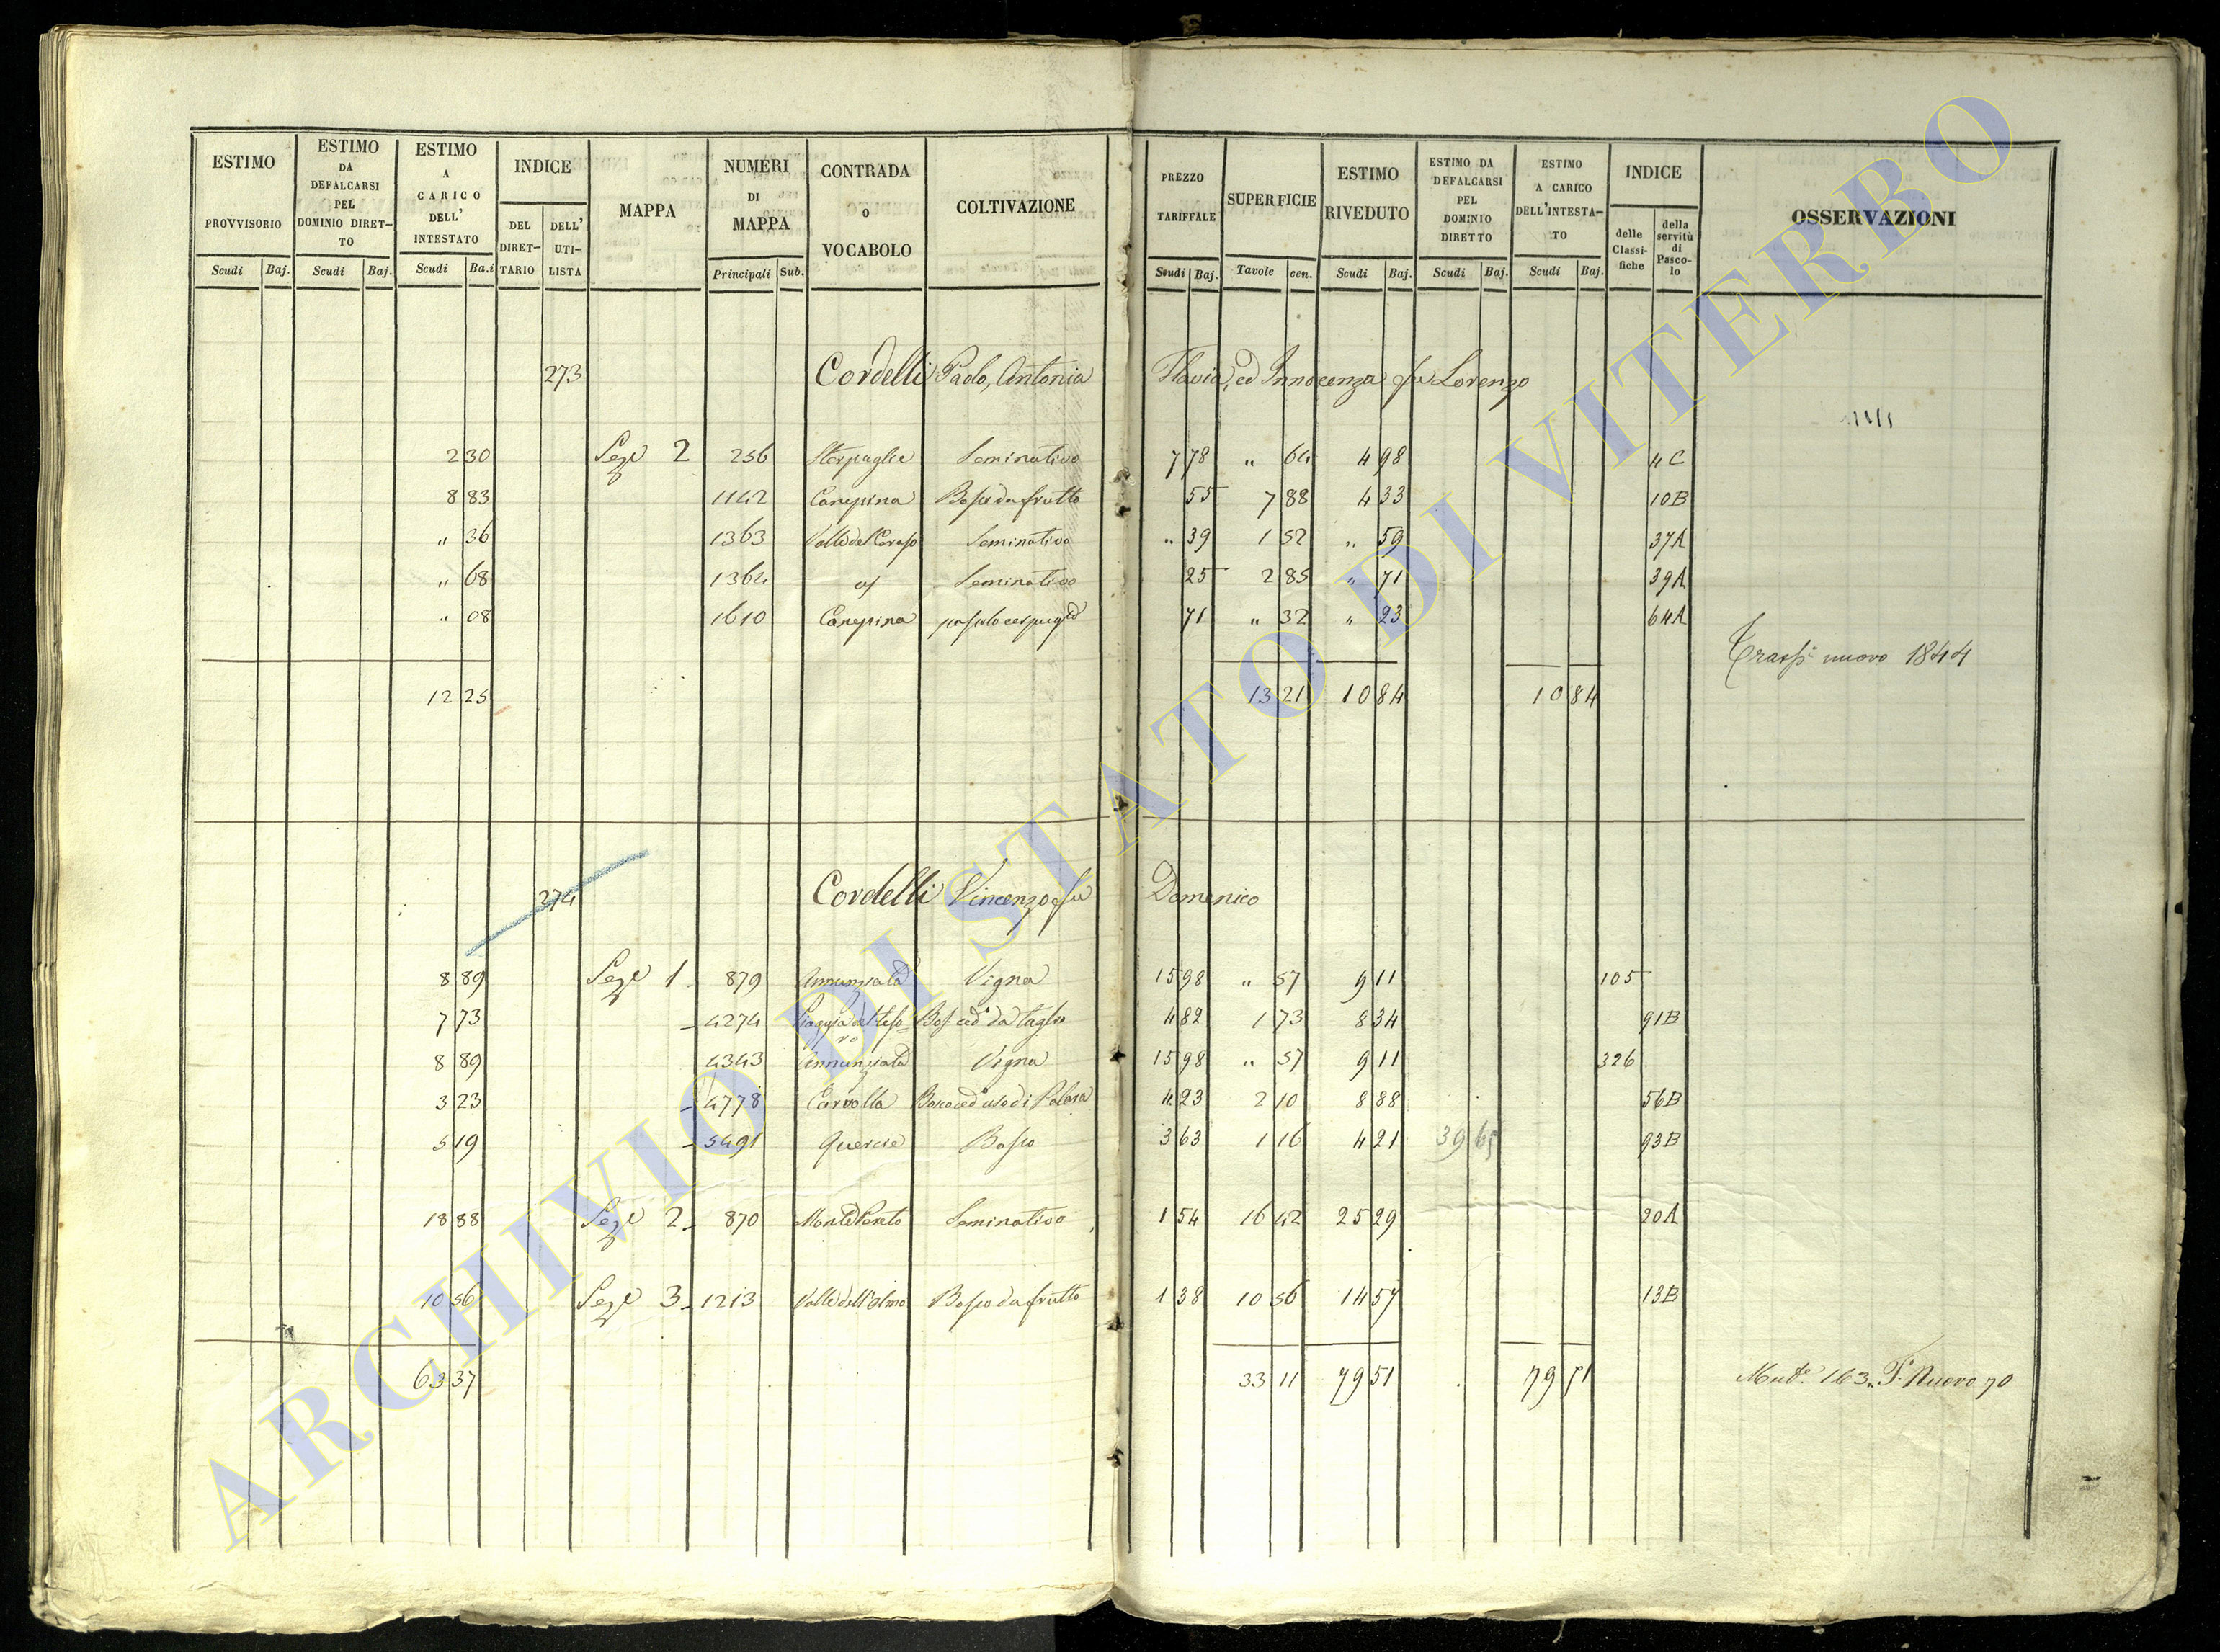 ESTIMO PROVVISORIO Scudi Baj. ESTIMO DA DEFALCARSI PEL DOMINIO DIRET-TO Scudi Baj. ESTIMO A CARICO DELL' INTESTATO Scudi Ba.i INDICE DEL DIRET-TARIO DELL' UTI-LISTA MAPPA NUMERI DI MAPPA Principali Sub. CONTRADA O VOCABOLO COLTIVAZIONE PREZZO TARIFFALE Scudi Baj. SUPERFICIE Tavole cen. ESTIMO RIVEDUTO Scudi Baj. ESTIMO DA DEFALCARSI PEL DOMINIO DIRETTO Scudi Baj. ESTIMO A CARICO DELL'INTESTA-TO Scudi Baj. INDICE delle Classi-fiche della servitù di Pasco-lo OSSERVAZIONI
273 Cordelli Paolo, Antonia Flavia, ed Innocenza fu Lorenzo
2 30 Seze 2 256 Sterpaglie Seminativo 7 78 " 64 4 98 4C
8 83 1142 Canepina Bosco da frutto 55 7 88 4 33 10B
" 36 1363 Valle del Ceraso Seminativo " 39 1 52 " 59 37A
" 68 1364 Seminativo 25 2 85 " 71 39A
" 08 1610 Canepina pascolo cespugto 71 " 32 " 23 64A
Trasps nuovo 1844
12 25 13 21 10 84 10 84
274 Cordelli Vincenzo fu Domenico
8 89 Seze 1 879 Annunziata Vigna 15 98 " 57 9 11 105
7 73 4274 Piaggia del Teso=ro Bos. ced. da taglio 4 82 1 73 8 34 91B
8 89 4343 Annunziata Vigna 15 98 " 57 9 11 326
3 23 4778 Carvolla Bosco ced. uso di Palara 4 23 2 10 8 88 56B
5 19 5491 Quercie Bosco 3 63 1 16 4 21 39 65 93B
18 88 Seze 2 870 Monte Pereto Seminativo 1 54 16 42 25 29 20A
10 56 Seze 3 1213 Valle dell'Olmo Bosco da frutto 1 38 10 56 14 57 13B
63 37 33 11 79 51 79 51 Muta 163. T. Nuovo 70
ARCHIVIO DI STATO DI VITERBO